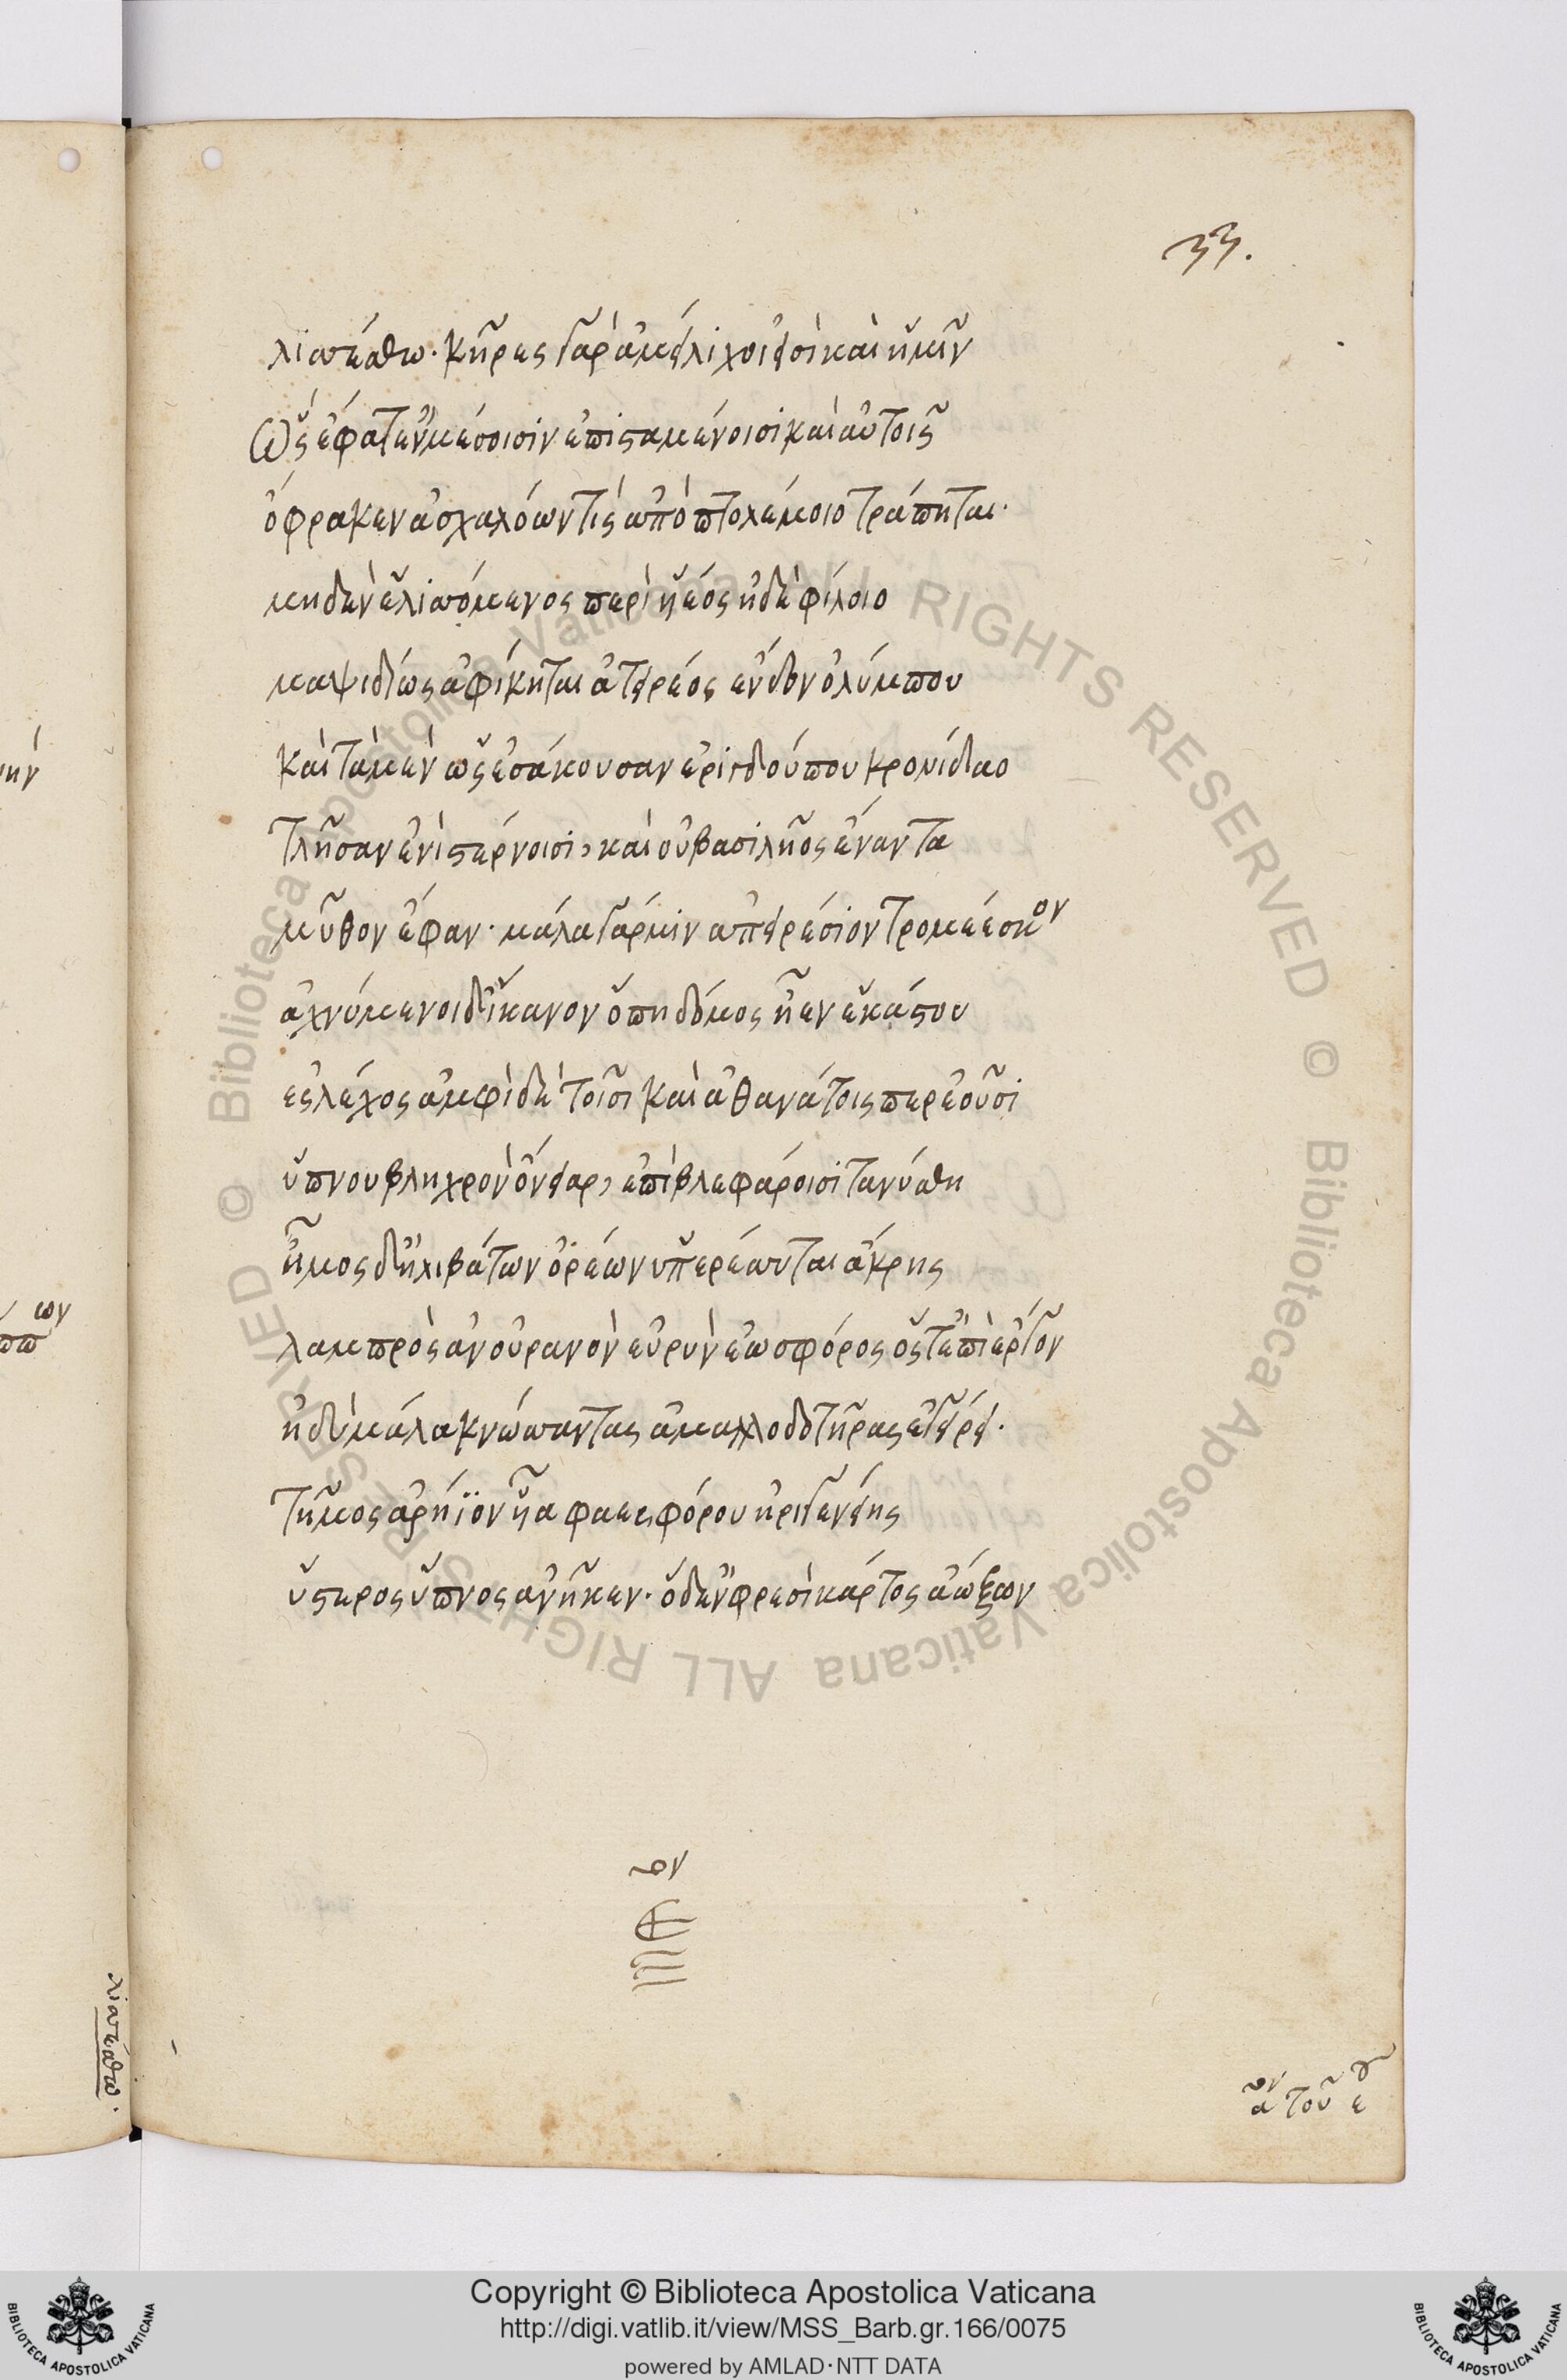 33.
λιπέσθω· κῆρες γὰρ ἀμείλιχοι εἰσὶ καὶ ἡμῖν
Ὣς ἔφατ' ἐν μέσοισιν ἐπισταμένοισι καὶ αὐτοῖς
ὄφρα κεν ἀσχαλόων τὶς ἀπὸ πτολέμοιο τράπηται·
μηδὲν ἑλιπόμενος περὶ υἱέος ἠδὲ φίλοιο
μαψιδίως ἀφίκηται ἀτειρέος ἔνδον ὀλύμπου
καὶ τὰ μὲν ὣς ἐσάκουσαν ἐριγδούπου κρονίδαο
τλῆσαν ἐνὶ στέρνοισι, καὶ οὐ βασιλῆος ἔναντα
μῦθον ἔφαν· μάλα γάρ μιν ἀπειρέσιον τρομέεσκον
ἀχνύμενοι δ' ἵκανον ὅπη δόμος ἦεν ἑκάστου
ἐς λέχος ἀμφὶ δὲ τοῖσι καὶ ἀθανάτοις περ ἐοῦσι
ὕπνου βληχρὸν ὄνειαρ, ἐπὶ βλεφάροισι τανύσθη
ἦμος δ' ἠλιβάτων ὀρέων ὑπερέπυται ἄκρης
λαμπρὸς ἀν οὐρανὸν εὐρὺν ἑωσφόρος ὅς τ' ἐπὶ ἔργον
ἡδὺ μάλα κνώσσοντας ἀμαλλοδοτῆρας ἐγείρει·
τῆμος ἀρήϊον υἷα φαεσφόρου ἠριγενείης
ὕστερος ὕπνος ἀνῆκεν· ὃ δ' ἐν φρεσὶ κάρτος ἀέξων
λιπέσθω·